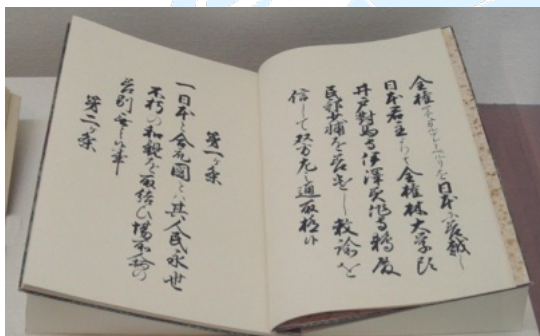 全権マテユカルブレトヘルリを日本に差越し
日本君主よりハ全権林大学頭
井戸對馬守伊澤美作守鵜殿
民部少輔を差遣し敕諭を
信して双方左之通取極候
第一ヶ条
一日本と合衆國とハ其人民永世
不朽の和親を取結ひ場所人柄の
差別無之候事
第二ヶ条